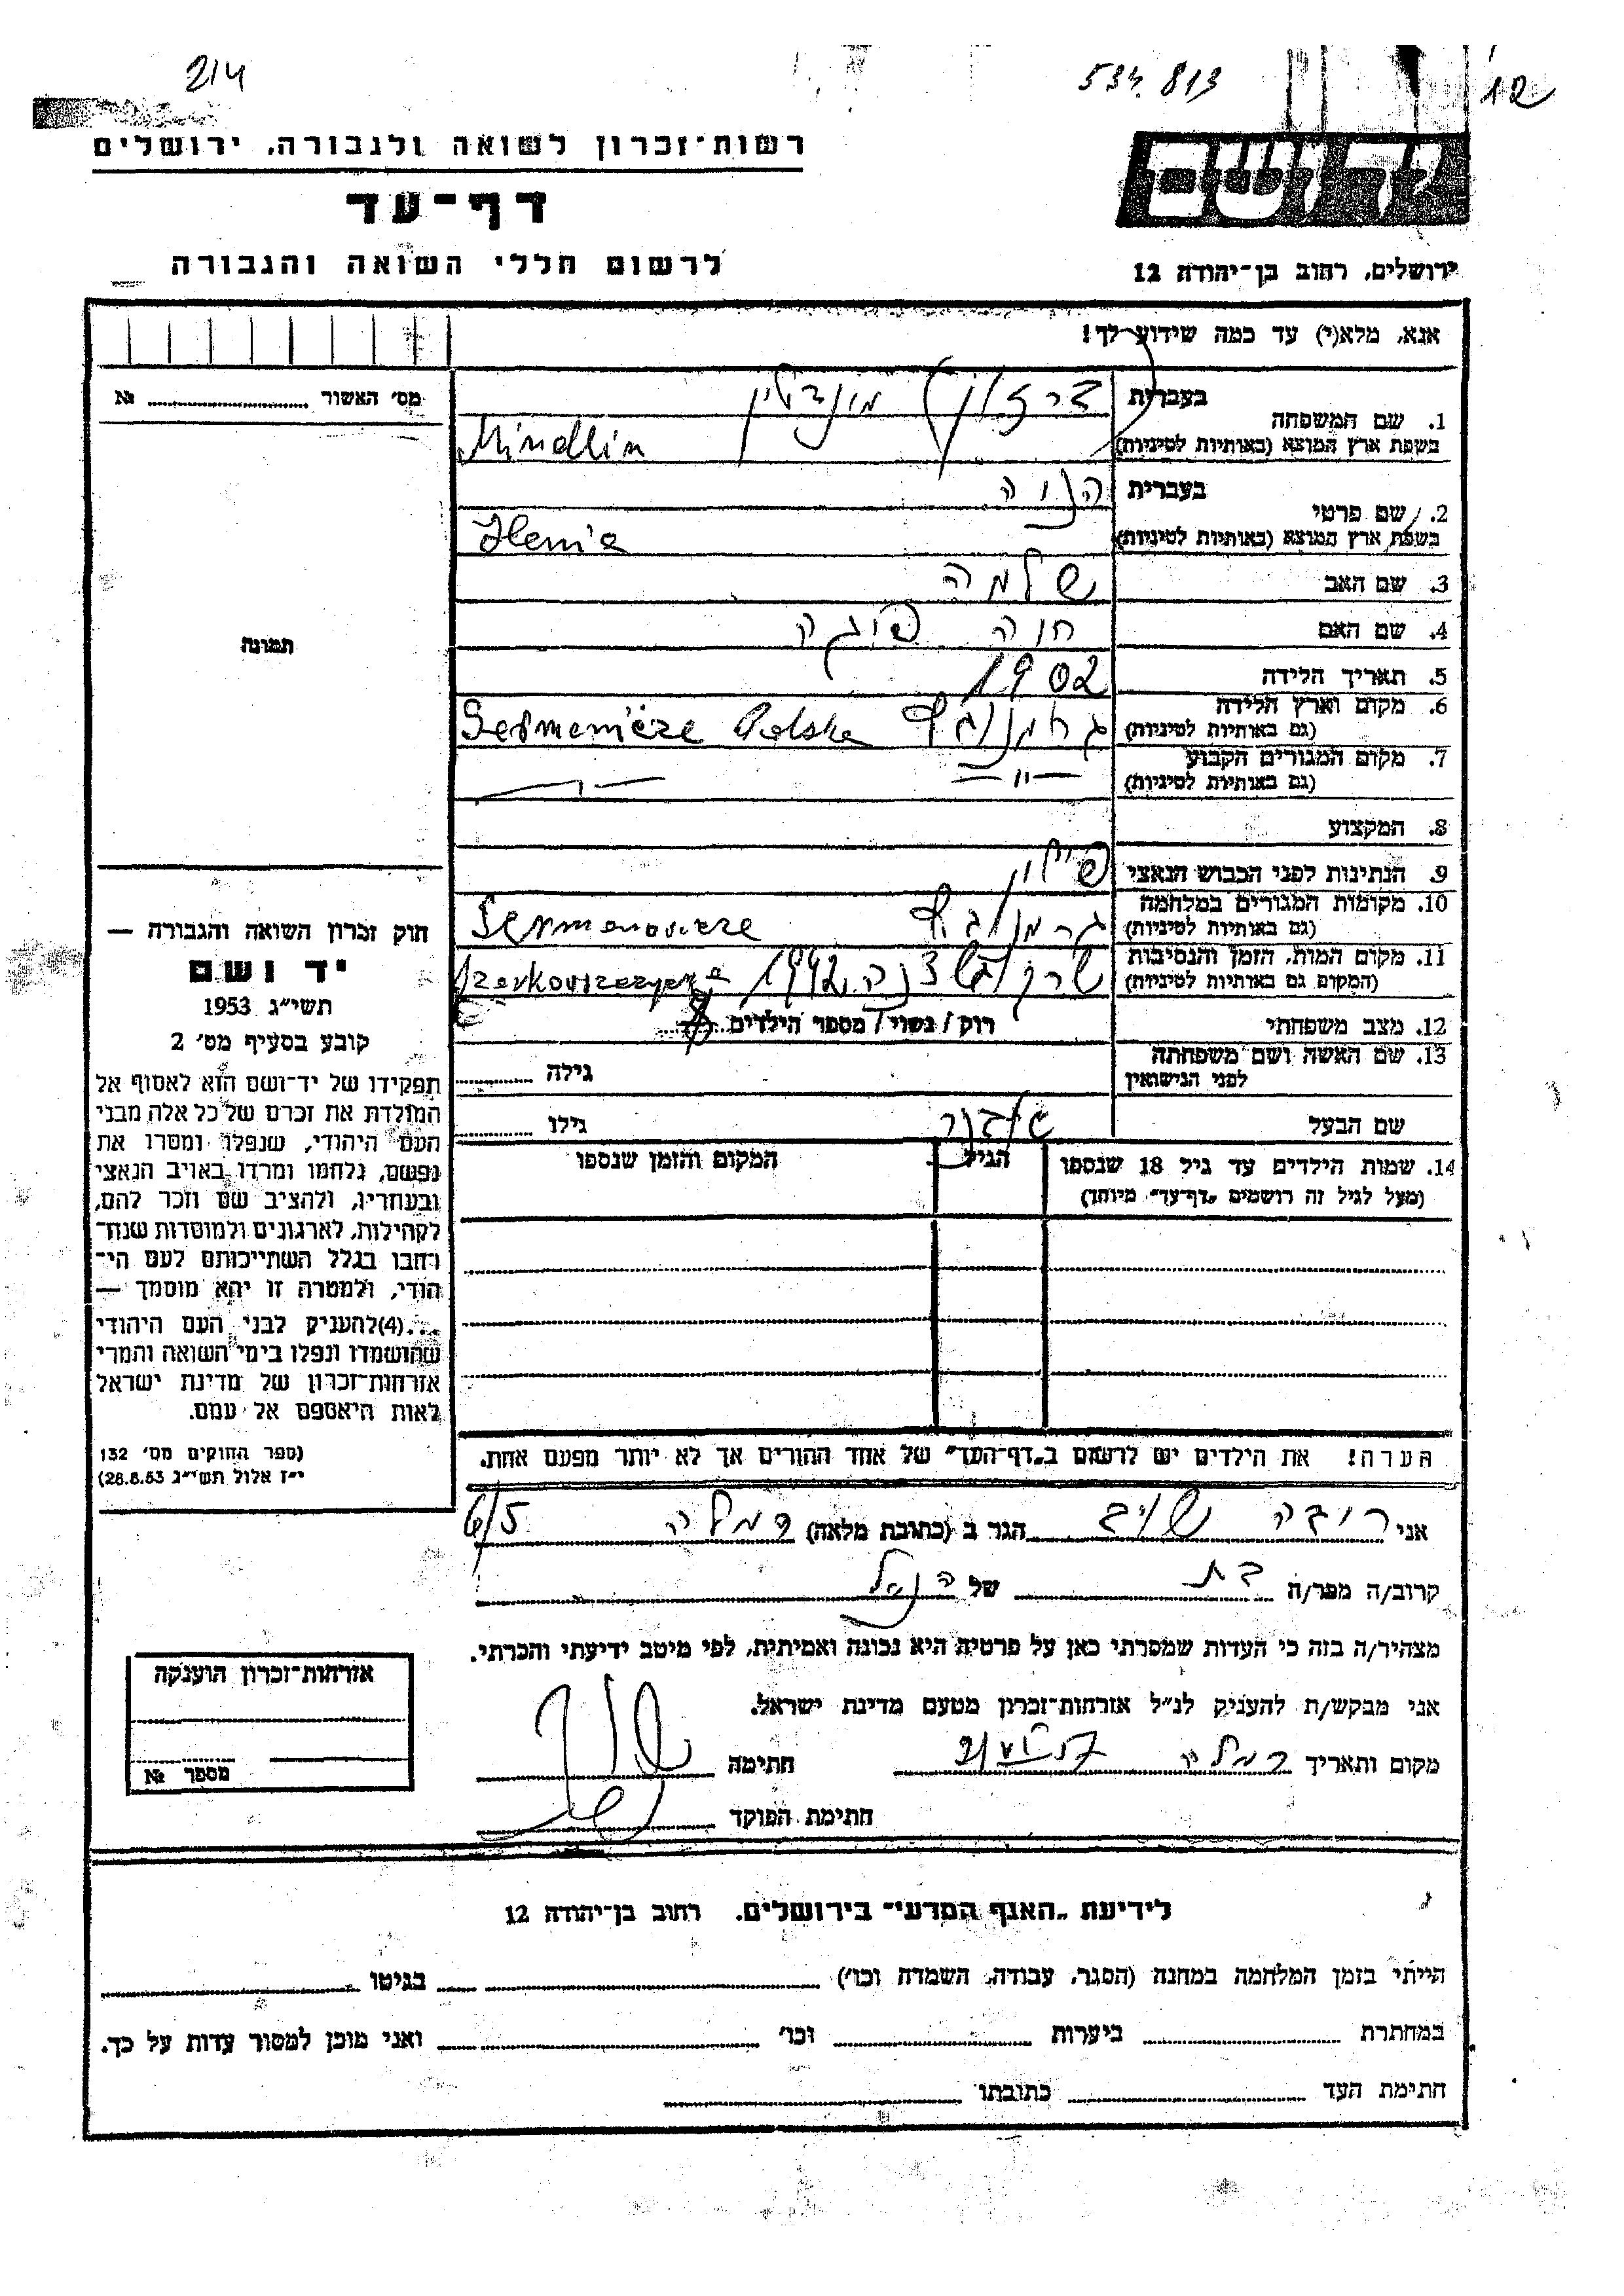 214
534.813
12
רשות־זכרון לשואה ולגבורה, ירושלים
יד ושם
דף־עד
לרשום חללי השואה והגבורה
ירושלים, רחוב בן־יהודה 12
אנא, מלא(י) עד כמה שידוע לך!
מס׳ האשור № 
1. שם המשפחה
בעברית
מינדלין
בשפת ארץ המוצא (באותיות לטיניות)
Mindlin
2. שם פרטי
בעברית
הניה
בשפת ארץ המוצא (באותיות לטיניות)
Henia
3. שם האב
שלמה
4. שם האם
חוה פיגה
5. תאריך הלידה
1902
6. מקום וארץ הלידה
(גם באותיות לטיניות)
Polska
7. מקום המגורים הקבוע
(גם באותיות לטיניות)
— " —
8. המקצוע
9. הנתינות לפני הכבוש הנאצי
פולני
10. מקומות המגורים במלחמה
(גם באותיות לטיניות)
11. מקום המות, הזמן והנסיבות
(המקום גם באותיות לטיניות)
1942
12. מצב משפחתי
רוק / נשוי / מספר הילדים
13. שם האשה ושם משפחתה
לפני הנישואין
גילה
שם הבעל
גילו
14. שמות הילדים עד גיל 18 שנספו
(מעל לגיל זה רושמים „דף־עד״ מיוחד)
הגיל
המקום והזמן שנספו
הערה! את הילדים יש לרשום ב„דף־העד״ של אחד ההורים אך לא יותר מפעם אחת.
תמונה
חוק זכרון השואה והגבורה —
יד ושם
תשי״ג 1953
קובע בסעיף מס׳ 2
תפקידו של יד־ושם הוא לאסוף אל
המולדת את זכרם של כל אלה מבני
העם היהודי, שנפלו ומסרו את
נפשם, נלחמו ומרדו באויב הנאצי
ובעוזריו, ולהציב שם וזכר להם,
לקהילות, לארגונים ולמוסדות שנח־
רבו בגלל השתייכותם לעם הי־
הודי, ולמטרה זו יהא מוסמך —
...(4) להעניק לבני העם היהודי
שהושמדו ונפלו בימי השואה והמרי
אזרחות־זכרון של מדינת ישראל
לאות היאספם אל עמם.
(ספר החוקים מס׳ 132
י״ז אלול תשי״ג 28.8.53)
אני הגר ב (כתובת מלאה) רמלה
קרוב/ה מפר/ה בת של
מצהיר/ה בזה כי העדות שמסרתי כאן על פרטיה היא נכונה ואמיתית, לפי מיטב ידיעתי והכרתי.
אני מבקש/ת להעניק לנ״ל אזרחות־זכרון מטעם מדינת ישראל.
מקום ותאריך רמלה חתימה
חתימת הפוקד
אזרחות־זכרון הוענקה
מספר №
לידיעת „האגף המדעי״ בירושלים, רחוב בן־יהודה 12
הייתי בזמן המלחמה במחנה (הסגר, עבודה, השמדה וכו׳) בגיטו
במחתרת ביערות וכו׳ ואני מוכן למסור עדות על כך.
חתימת העד כתובתו